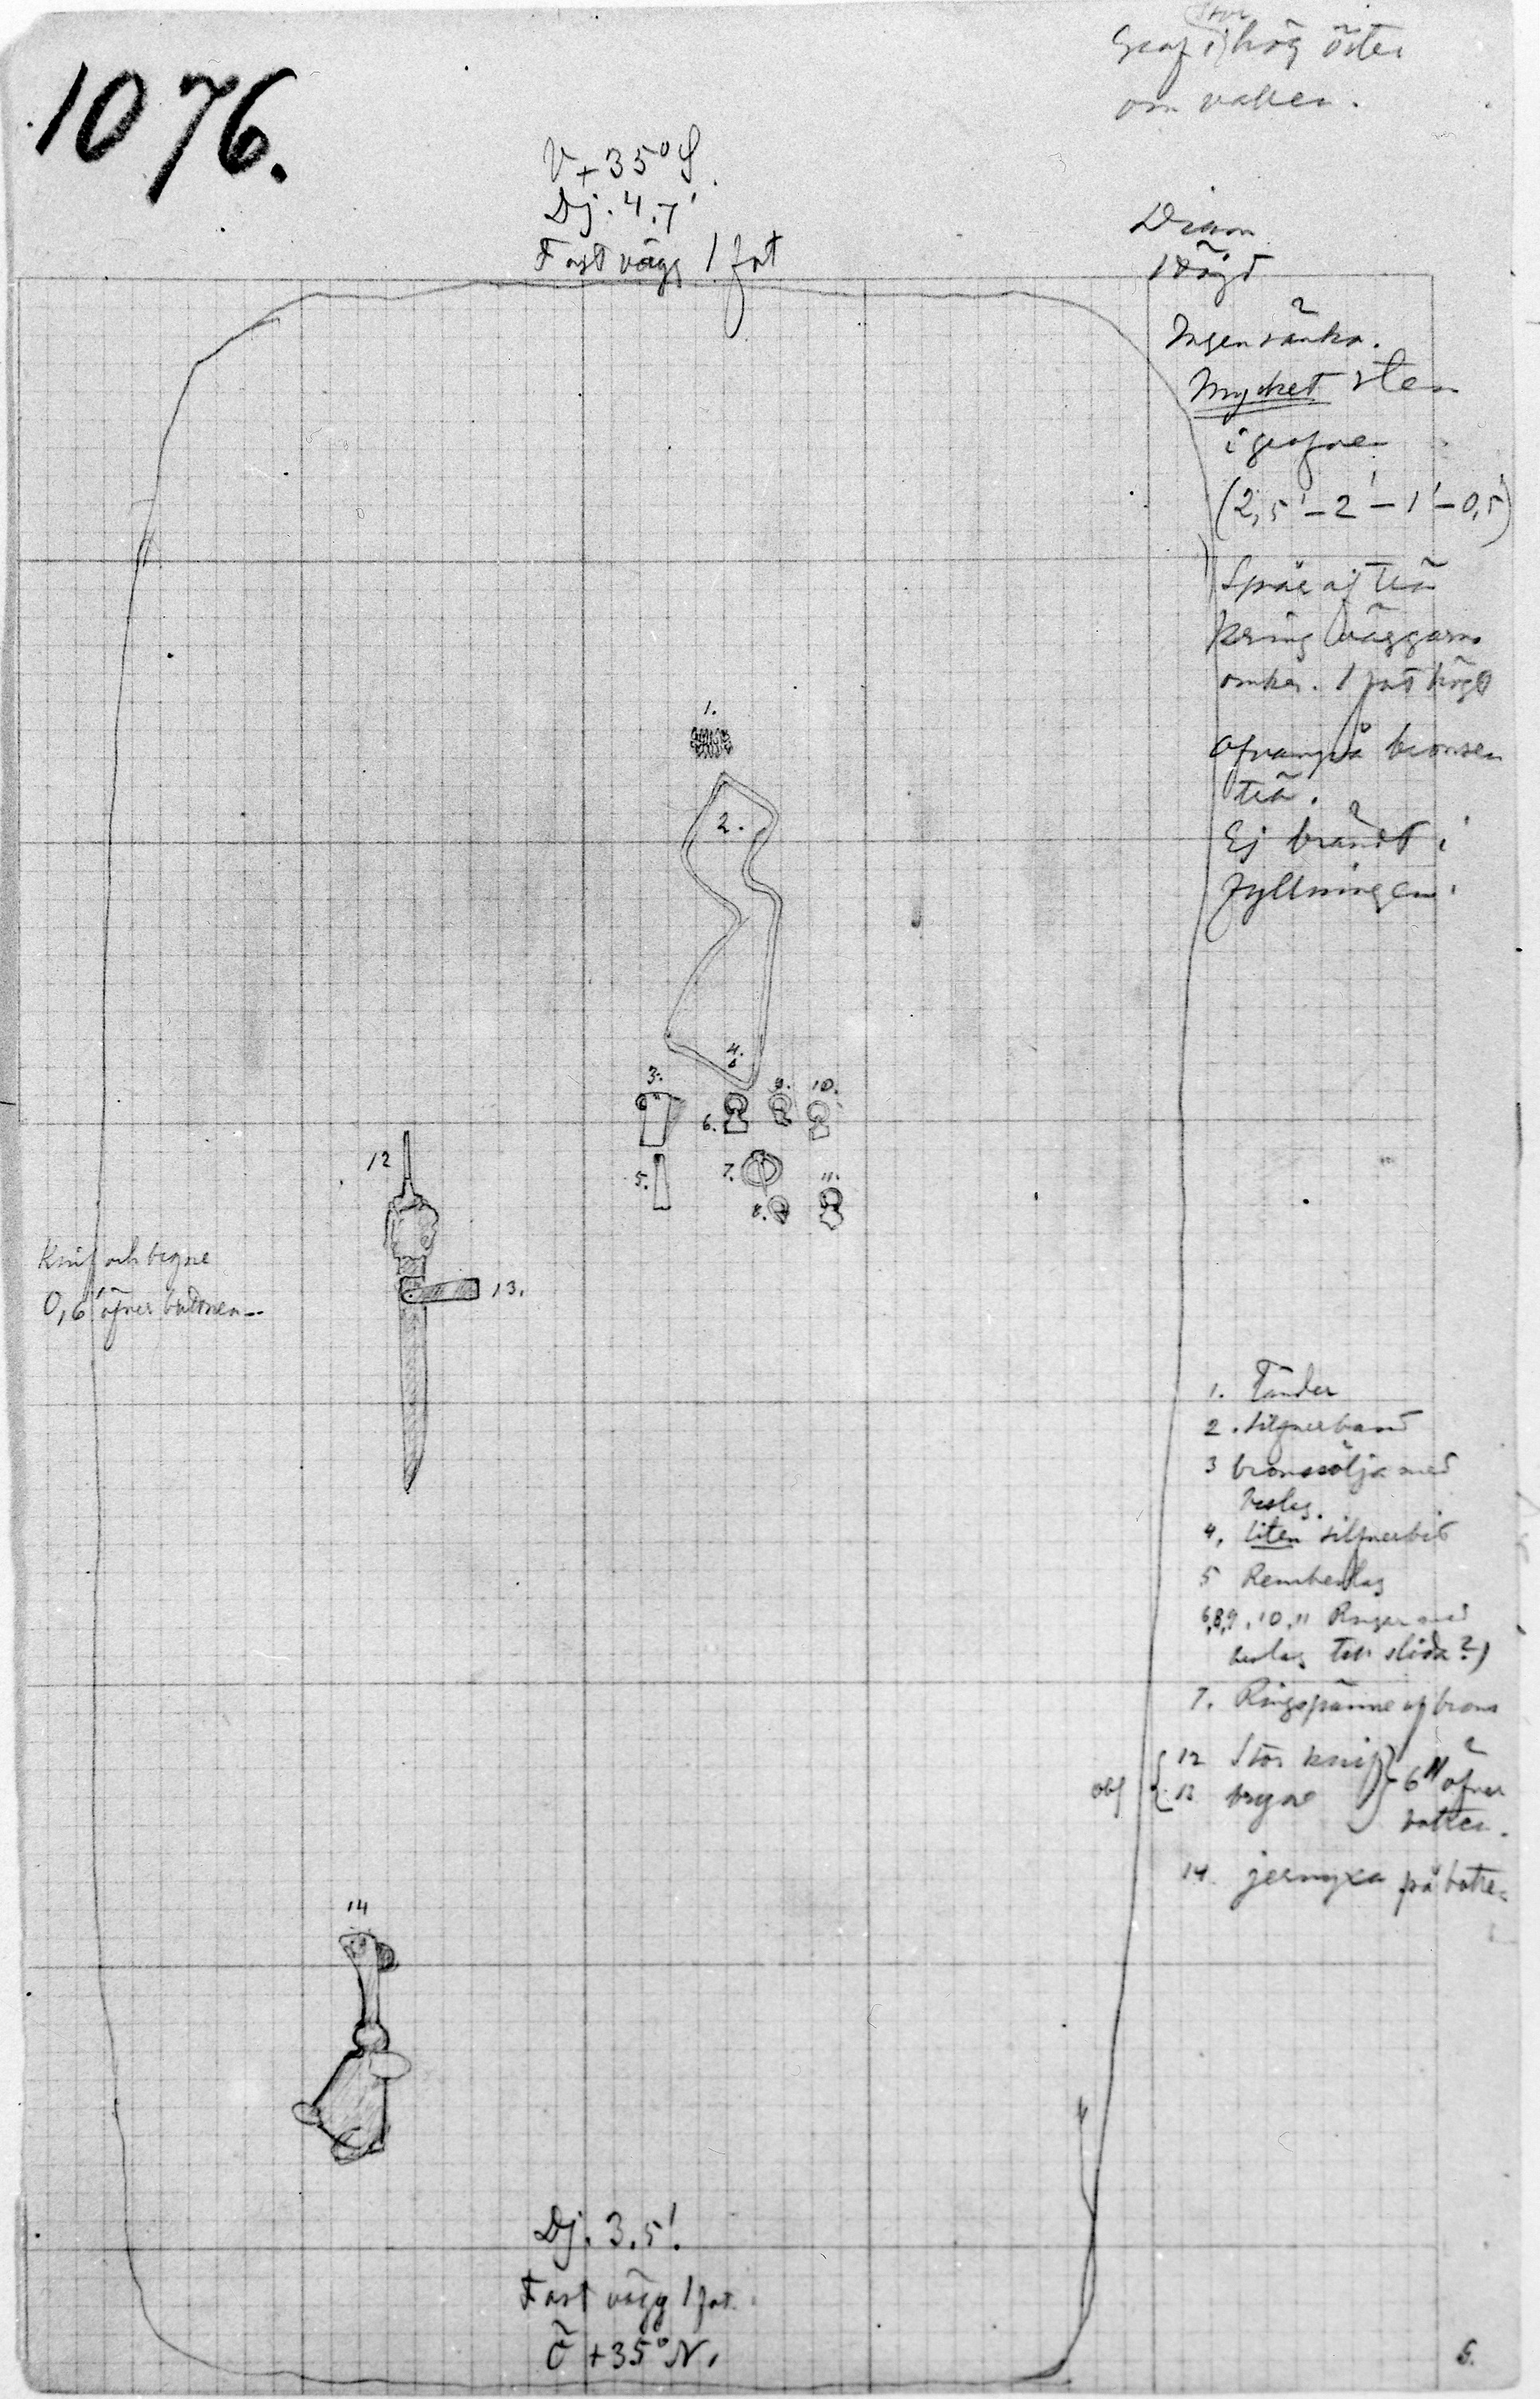 1076.
Graf i stor hög öster
om vallen.
V + 35° S.
Dj. 4.7'
Fast vägg 1 fot
Diam
Höjd
Ingen sänka.
Mycket sten
i grafven
(2,5' – 2' – 1' – 0,5')
Spår af trä
kring väggarna
omkr. 1 fot högt
Ofvanpå bronsen
trä.
Ej brändt i
fyllningen.
1.
2.
4.
3.
9.
10.
6.
12
5.
7.
11.
8.
Knif och bryne
0,6' öfver bottnen
13.
1. Tänder
2. Silfverband
3 bronssölja med
beslag.
4. Liten silfverbit
5 Rembeslag
6,8,9, 10, 11 Ringar med
beslag till slida?)
7. Ringspänne af brons
obs { 12 Stor knif } 6" öfver
13 bryne botten.
14. jernyxa på botten
14
Dj. 3.5'.
Fast vägg 1 fot.
Ö + 35° N.